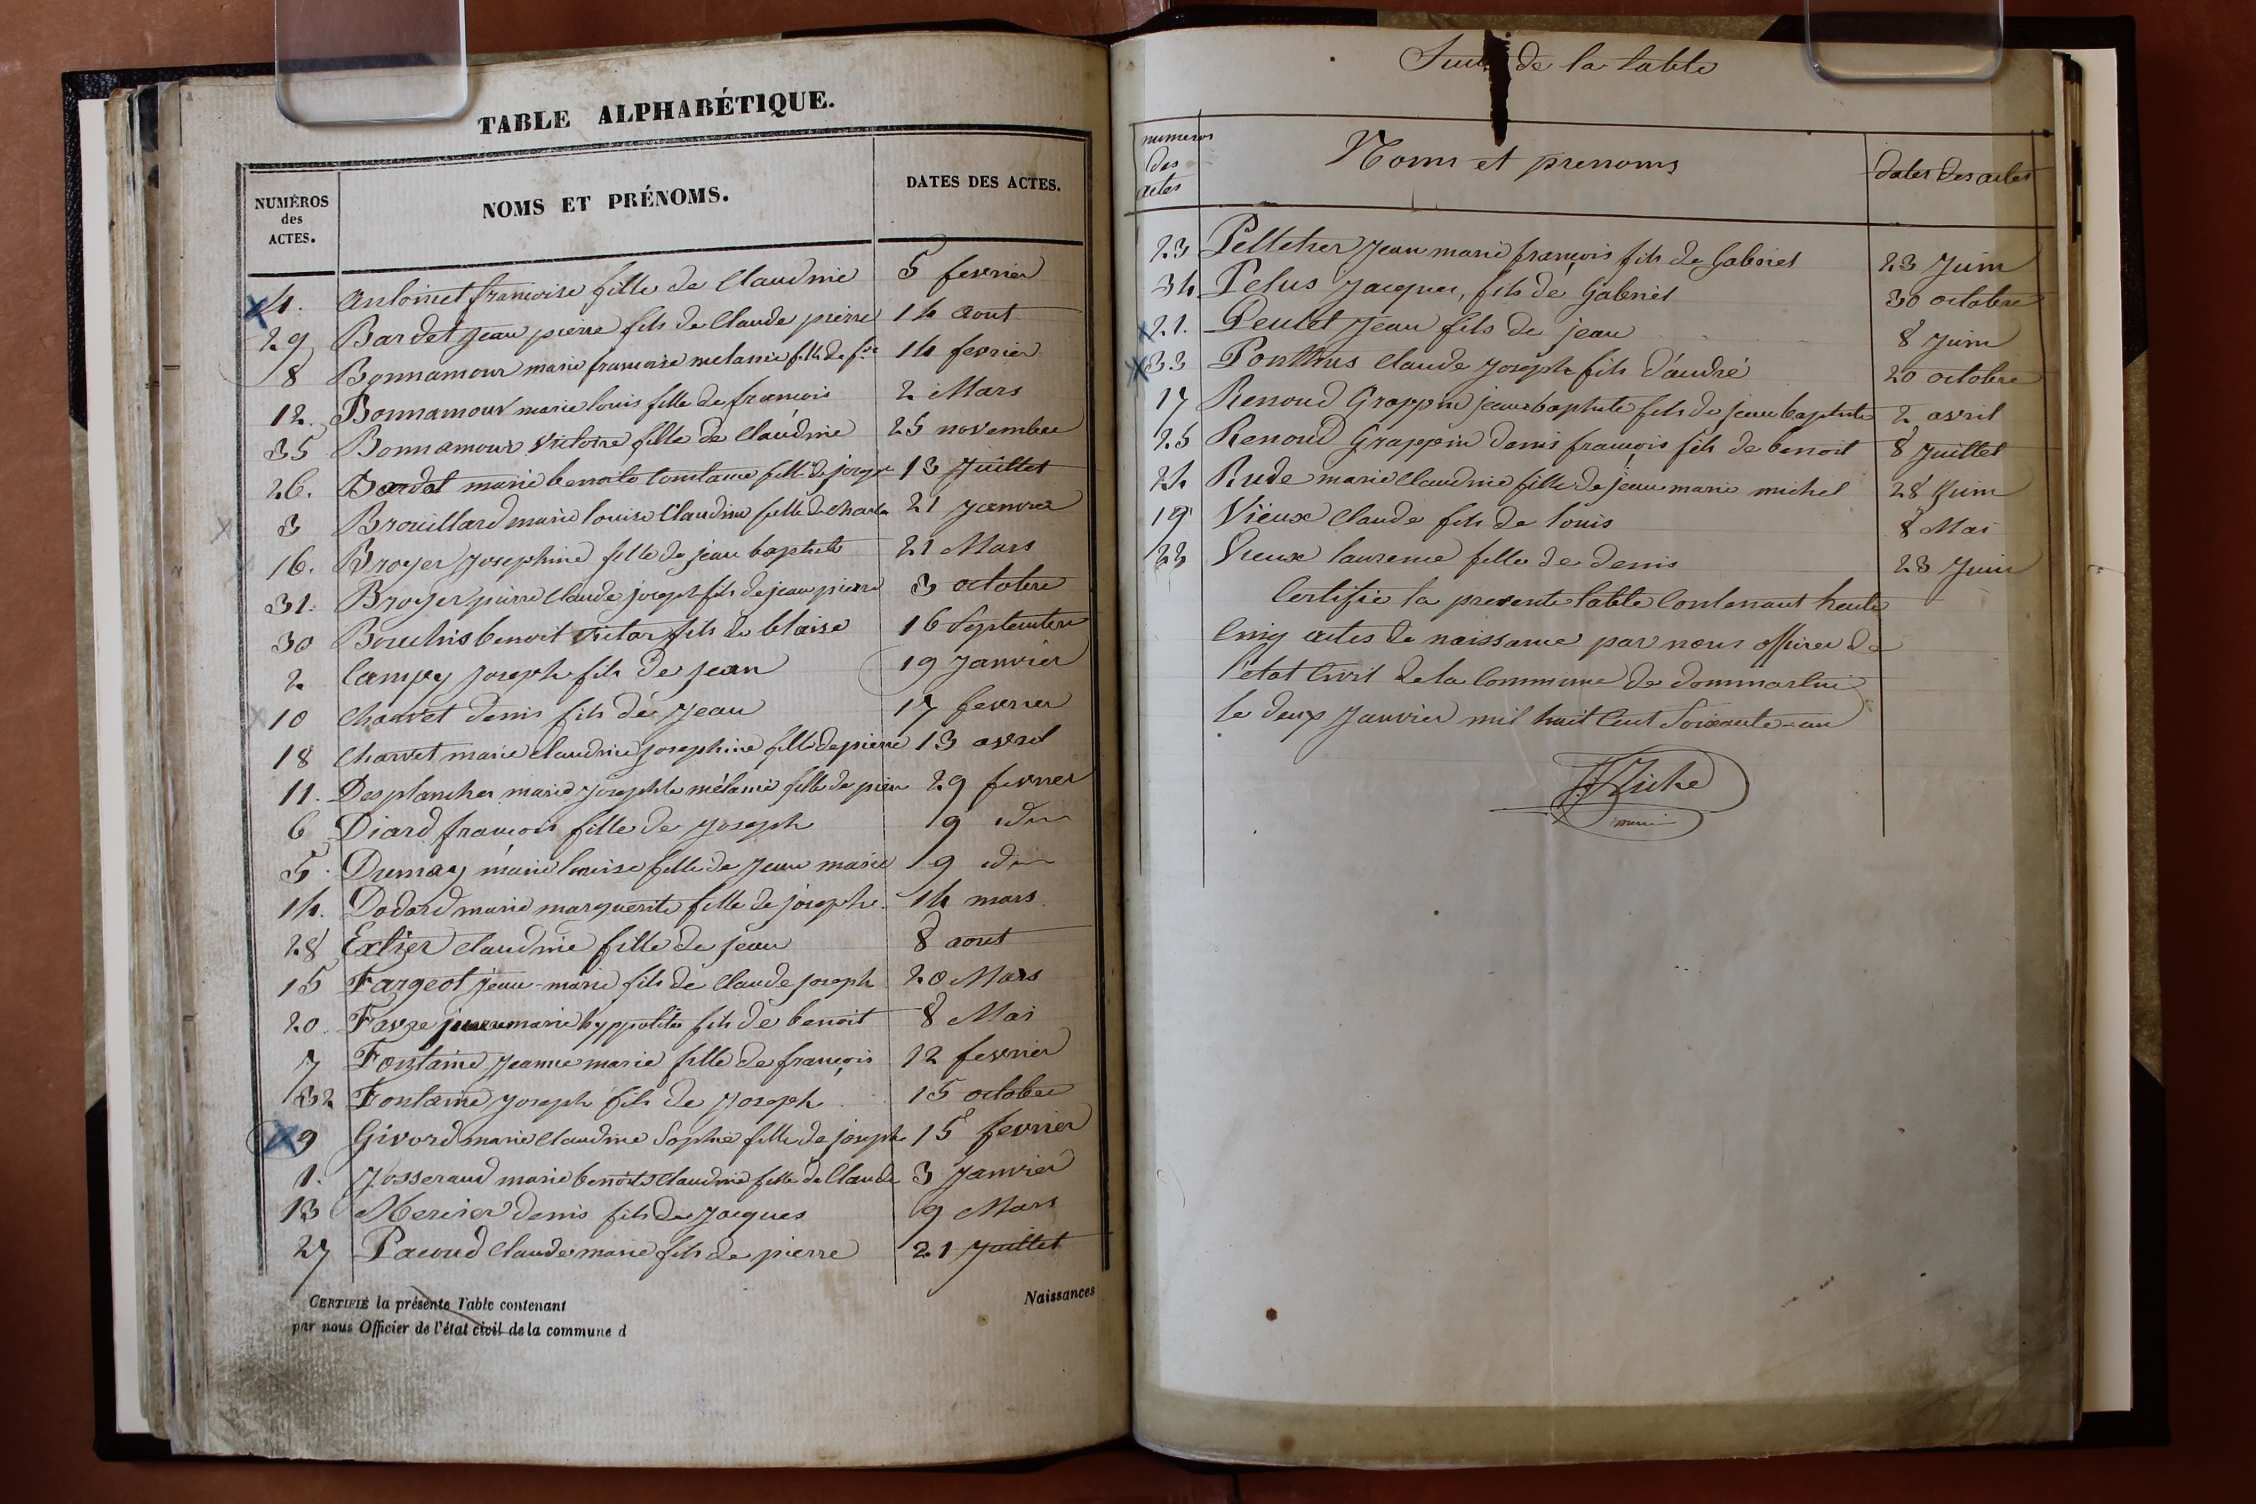 TABLE ALPHABÉTIQUE.
NUMÉROS
des
ACTES.
NOMS ET PRÉNOMS.
DATES DES ACTES.
4. Antoinet françoise fille de Claudine 5 fevrier
29 Bardet Jean pierre fils de Claude pierre 14 aout
8 Bonnamour marie françoise melanie fille de 14 fevrier
12. Bonnamour marie louis fille de francois 2 Mars
35 Bonnamour victoire fille de Claudine 25 novembre
26. Bardet marie benoite constance fille de 13 Juillet
3 Brouillard marie louise Claudine fille de Charles 21 Janvier
16. Broyer Josephine fille de jean baptiste 21 Mars
31. Broyer pierre Claude joseph fils de jean pierre 3 octobre
30 benoit Victor fils de blaise 16 Septembre
2 Campy Joseph fils de Jean 19 Janvier
10 Charvet denis fils de Jean 17 fevrier
18 Charvet marie claudine josephine fille de pierre 13 avril
11. Desplanches marie Josephte mélanie fille de pierre 29 fevrier
6 Diard francois fille de Joseph 9 idm
5 Dumay marie louise fille de Jean marie 9 idm
14. Dodard marie marguerite fille de joseph. 14 mars
28 Extier Claudine fille de jean 8 aout
15 Fargeot jean-marie fils de Claude joseph 20 Mars
20. Favre marie hyppolite fils de benoit 8 Mai
7 Fontaine Jeanne marie fille de françois 12 fevrier
32 Fontaine Joseph fils de Joseph 15 octobre
9 Givord marie Claudine Sophie fille de joseph 15 fevrier
1. Josserand marie benoite Claudine fille de Claude 3 Janvier
13 Mercier denis fils de Jacques 9 Mars
27 Pacoud Claude marie fils de pierre 21 Juillet
CERTIFIÉ la présente Table contenant Naissances
par nous Officier de l'état civil de la commune d
Suite de la table
numeros
des
actes
Noms et prenoms
dates des actes
23 Pelletier Jean marie françois fils de Gabriel 23 Juin
34 Pelus Jacques, fils de Gabriel 30 octobre
21. Peulet Jean fils de jean 8 Juin
33 Ponthus Claude Joseph fils d'andré 20 octobre
17 Renoud Grappin jean baptiste fils de jean baptiste 2 avril
25 Renoud Grappin denis françois fils de benoit 8 Juillet
24 Rude marie Claudine fille de jean marie michel 28 Juin
19 Vieux Claude fils de louis 8 Mai
22 Vieux laurence fille de denis 23 Juin
Certifie la presente table Contenant trente
Cinq actes de naissance par nous officier de
l'état Civil de la Commune de dommartin
le deux Janvier mil huit Cent Soixante-un
maire